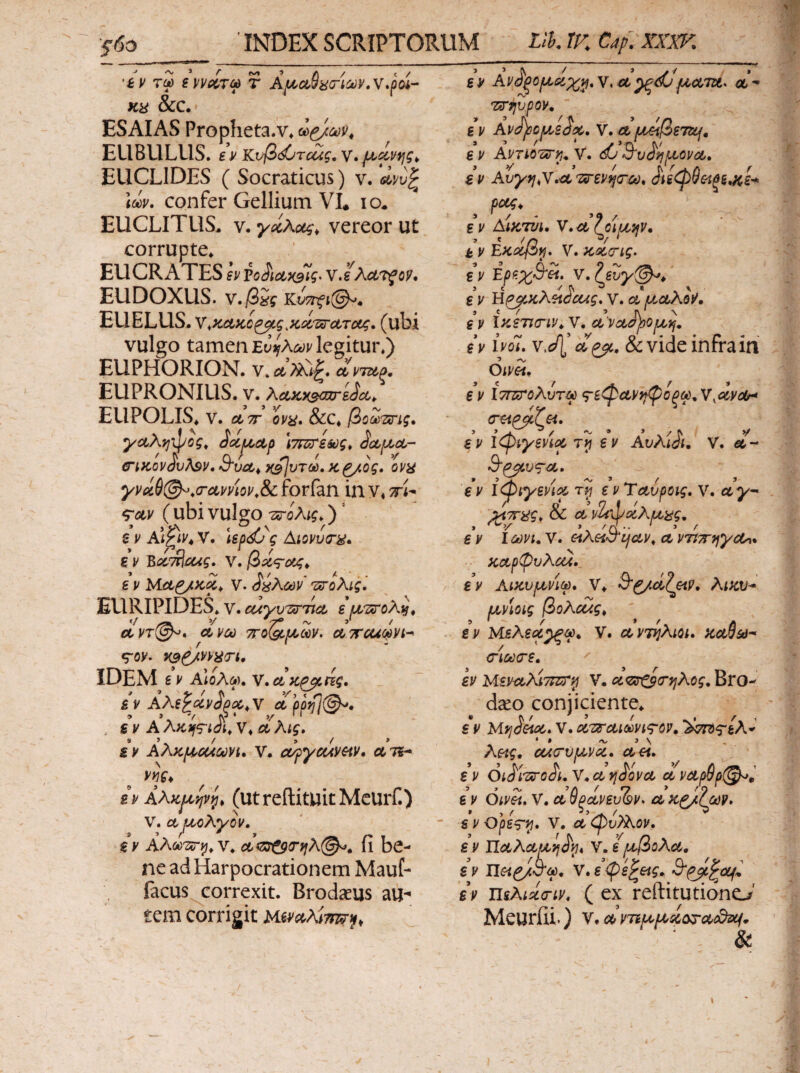 560 INDEX SCRIPTORUM Lib. IV. Cap. XXXV.
ἐν τῷ ἐννάτῳ τ Ἀμαθουσίων. v. ῥοί-
κου &c.
ESAIAS Propheta. v. ὡρίων.
EUBULUS. ἐν Κυβευταῖς. v. μάνης.
EUCLIDES ( Socraticus) v. ἀνυξ
ιῶν. confer Gellium VI. 10.
EUCLITUS. v. γάλας. vereor ut
corrupte.
EUCRATES ἐν Ῥοδιακοῖς. v. ἐλατρον.
EUDOXUS. v. βοῦς Κύπριος.
EUELUS. v. κακόρας. κάπατας. (ubi
vulgo tamen Εὐήλων legitur.)
EUPHORION. v. ἄλλιξ. ἀντὰρ.
EUPRONIUS. v. λακκοπρέδα.
EUPOLIS. v. ἀπ' ὄνου. &c. βοῶπις.
γαληψός. δάμαρ ἱππέως. δαμα-
σικόνδυλον. θύα. κριτῶ. κριός. ὄνου
γνάθος. σαννίον. & forsan in v. πί-
σαν ( ubi vulgo πόλις.)
ἐν Αἰξίν. v. ἱερεὺς Διονύσου.
ἐν Βάπταις. v. βάστας.
ἐν Μαρικᾷ. v. δούλων πόλις.
EURIPIDES. v. αἰγυπτία ἐμπολή.
ἄντος. ἄνω ποταμῶν. ἀπαιώνι-
στον. κριννουσι.
IDEM ἐν Αἰόλῳ. v. ἀκρατίς.
ἐν Ἀλεξάνδρᾳ. v ἄρρητος.
ἐν Ἀλκήστιδι. v. ἅλις.
ἐν Ἀλκμαίωνι. v. ἀργαίνειν. ἀτέ-
νης.
ἐν Ἀλκμήνῃ. (ut restituit Meurs.)
v. ἀμολγόν.
ἐν Ἀλώπῃ. v. ἀπρόσηλος. si be-
ne ad Harpocrationem Mauf-
facus correxit. Brodæus au-
tem corrigit Μεναλίππῃ.
ἐν Ἀνδρομάχῃ. v. ἀγρεύματα. ἀ-
πήυρον.
ἐν Ἀνδρομέδᾳ. v. ἀμείβεται.
ἐν Ἀντιόπῃ. v. εὐθυδήμονα.
ἐν Αὐγῃ. v. ἀπενήσω. διεφθειρε. κέ-
ρας.
ἐν Δίκτυι. v. ἀζοίμην.
ἐν Ἑκάβῃ. v. κάσις.
ἐν Ἐρεχθεῖ. v. ζεῦγος.
ἐν Ἡρακλείδαις. v. ἀμαλόν.
ἐν Ἱκέτισιν. v. ἀναδρομή.
ἐν Ἰνοῖ. v. δι' ἄρα. & vide infra in
Οἰνεῖ.
ἐν Ἱππολύτῳ στεφανηφόρῳ. v. ἀνα-
σειράζει.
ἐν Ἰφιγενίᾳ τῇ ἐν Αὐλίδι. v. ἄ-
θραυστα.
ἐν Ἰφιγενίᾳ τῇ ἐν Ταύροις. v. ἀγ-
χίπους. & ἀντιψάλμους.
ἐν Ἴωνι. v. εἰλειθυίαν. ἀντιπηγας.
καρφυλαί.
ἐν Λικυμνίῳ. v. θριάζειν. λικυ-
μνίοις βολαῖς.
ἐν Μελεάγρῳ. v. ἀντήλιοι. καθω-
σίωσε.
ἐν Μεναλίππῃ v. ἀπρόσηλος. Bro-
dæo conjiciente.
ἐν Μηδείᾳ. v. ἀπαιώνιστον. ἀποστέλ-
λεις. αἰσυμνᾷ. ἀεί.
ἐν Οἰδίποδι. v. ἀηδόνα ἄναρθρος.
ἐν Οἰνεῖ. v. ἀθράνευτον. ἀκρίζων.
ἐν Ὀρέστῃ. v. ἄφυλλον.
ἐν Παλαμήδῃ. v. ἐμβολα.
ἐν Πειρίθῳ. v. ἐφέξεις. θράξαι.
ἐν Πελιάσιν. ( ex restitutione
Meursii.) v. ἀντεμμάσασθαι.
&